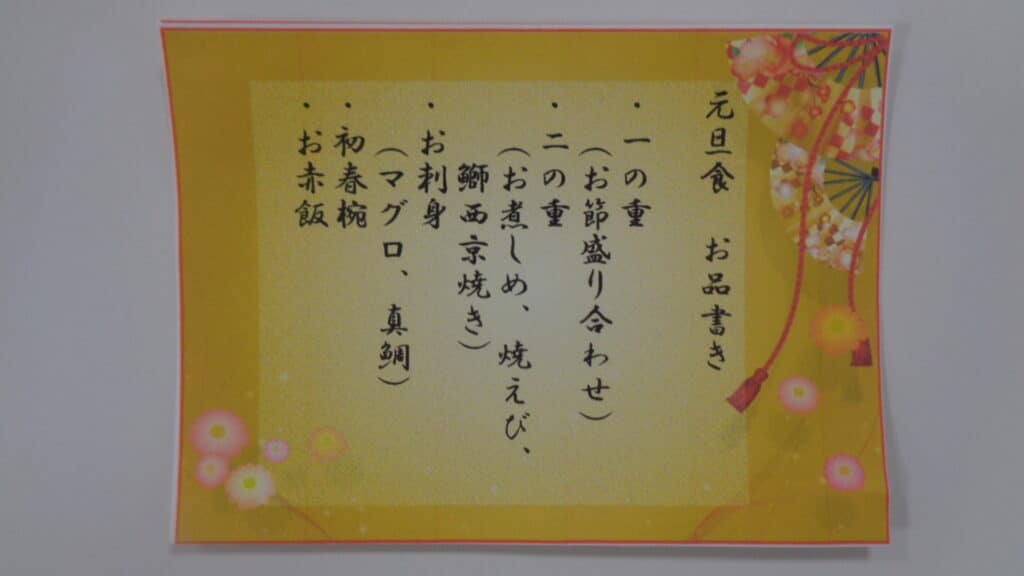 元旦食　お品書き
・一の重
（お節盛り合わせ）
・二の重
（お煮しめ、焼えび、
鰤西京焼き）
・お刺身
（マグロ、真鯛）
・初春椀
・お赤飯